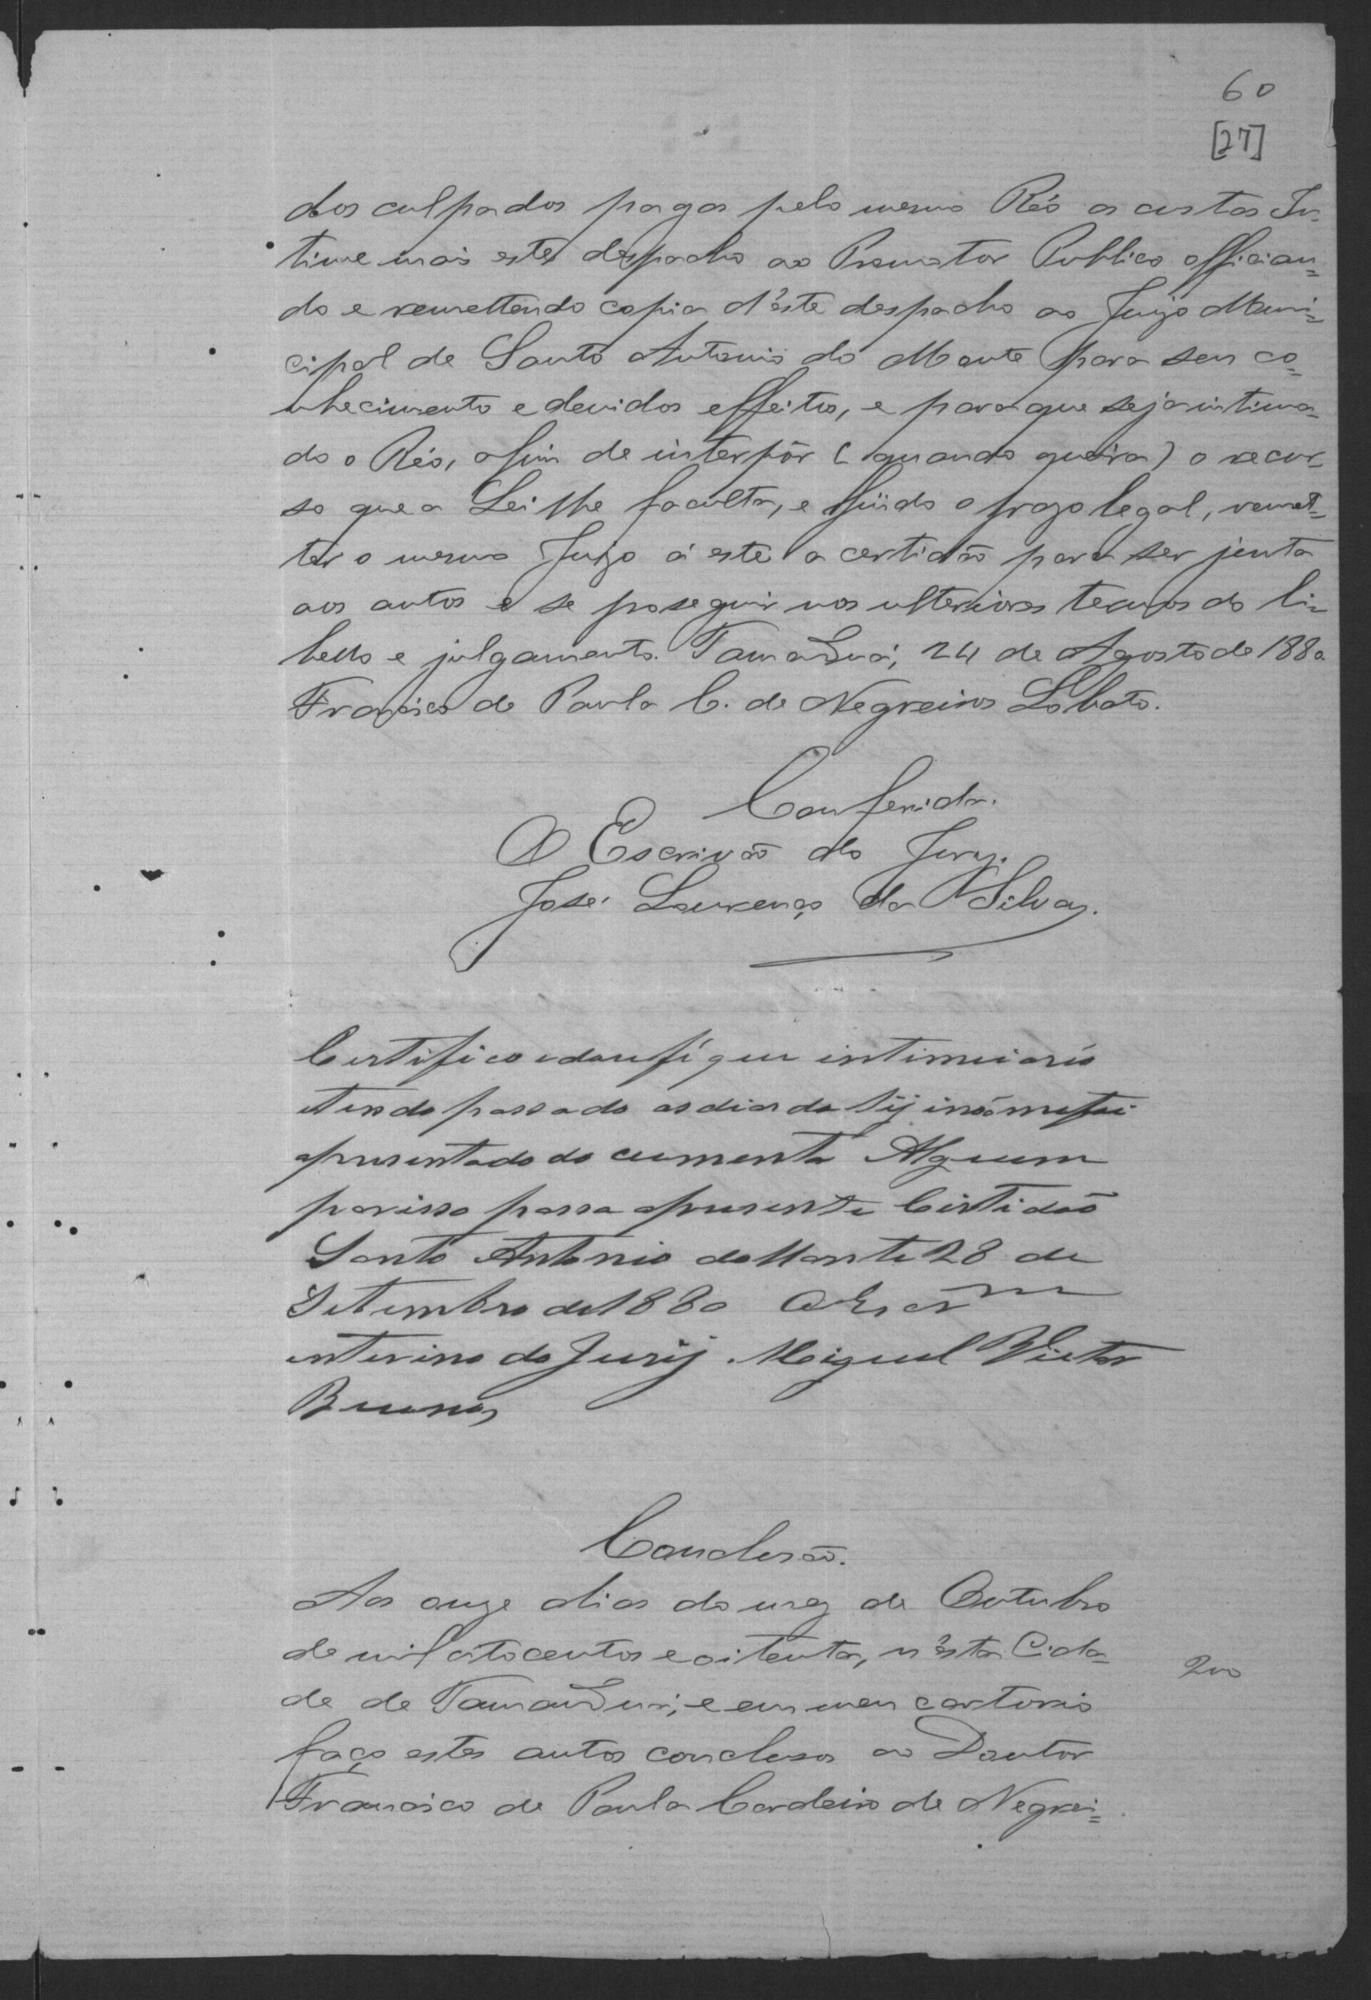 60
[27]
dos culpados pagas pelo mesmo Réo as custas In-
time mais este despacho ao Promotor Publico offician-
do e remettendo copia d'éste despacho ao Juizo Muni-
cipal de Santo Antonio do Monte para seu co-
nhecimento e devidos effeitos, e para que seja intima-
do o Réo, afim de interpôr (quando queira) o recur-
so que a Lei lhe faculta, e findo o prazo legal, remet-
ter o mesmo Juizo á este a certidão para ser junta
aos autos e se poseguir nos ulteriores termos do li-
bello e julgamento. Tamanduá, 24 de Agosto de 1880
Francisco de Paula C. de Negreiros Lobato.
Conferida.
O Escrivão do Jury.
José Lourenço da Silva.
Certifico e dou fé que intimei a réo
e tendo passado as dias da lij não me foi
apresentado do cumento Algum
por isso passa apresente Certidão
Santo Antonio do Monte 28 de
Setembro de 1880 O Escr
interino do Jurij. Miguel Victor
Buenos
Conclusão.
Aos onze dias do mez de Outubro
de mil oitocentos e oitenta, n'ésta Cida-
de de Tamanduá, e em meu cartorio
faço estes autos conclusos ao Doutor
200
Francisco de Paula Cordeiro de Negrei-